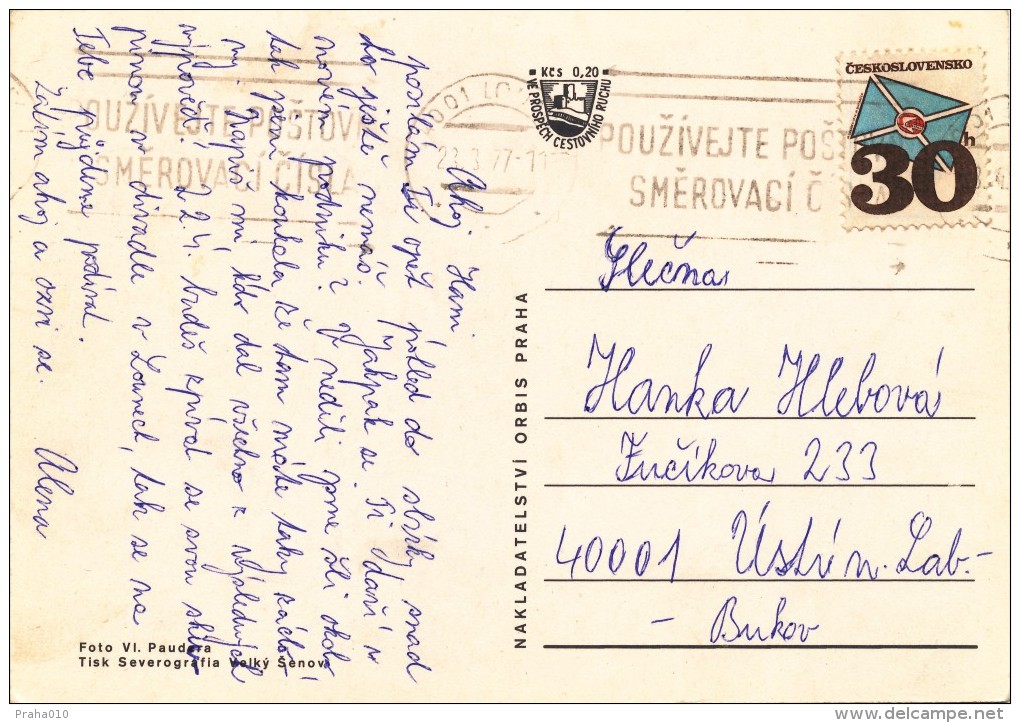 Ahoj Hani
posílám Ti opět pohled do sbírky snad
ho ještě nemáš. Jakpak se Ti daří v
novém podniku? V neděli jsme šli okolo
tak jsem koukala že tam máte taky
Napiš mi kdo dal všechno k
výpovědi. 22.4. budeš zpívat se svou
v divadle v Lounech, tak se na
Tebe přijdeme podívat.
Zatím ahoj a ozvi se. Alena
Foto Vl. Paudera
Tisk Severografia Velký Šenov
NAKLADATELSTVÍ ORBIS PRAHA
Kčs 0,20
VE PROSPĚCH CESTOVNÍHO RUCHU
POUŽÍVEJTE POŠTOVNÍ
SMĚROVACÍ ČÍSLA
23.3.77-11
POUŽÍVEJTE POŠ
SMĚROVACÍ Č
ČESKOSLOVENSKO
30h
Slečna
Hanka Hlebová
Fučíkova 233
40001 Ústí n. Lab.-
- Bukov
Praha010
delcampe.net